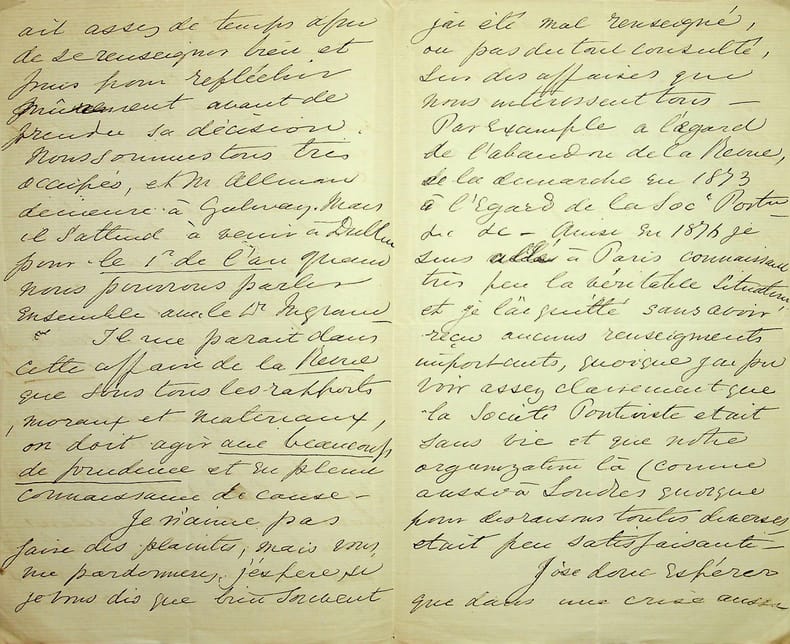 ait assez de temps afin
de se renseigner bien et
puis pour reflêchir
mûrement avant de
prendre sa décision.
Nous sommes tous très
occupés, et Mr Allman
demeure à Galway. Mais
il s'attend à venir à Dublin
pour le 1r de l'an quand
nous pourrons parler
ensemble avec le Dr Ingram
Il me parait dans
cette affaire de la Revue
que sous tous les rapports
, moraux et materiaux,
on doit agir avec beaucoup
de prudence et en pleine
connaissance de cause -
Je n'aime pas
faire des plaintes, mais vous
me pardonnerez, j'espere, si
je vous dis que bien souvent
j'ai été mal renseigné,
ou pas du tout consulté,
sur des affaires que
nous interessent tous -
Par Exemple a l'égard
de l'abandon de la Revue,
de la demarche en 1873
à l'Egard de la Soc. Positi-
viste - Ainsi en 1876 je
suis allé à Paris connaissant
très peu la véritable situation,
et je l'ai quitté sans avoir
reçu aucuns renseigments
importants, quoique j'ai pu
voir assez clairement que
la Société Positiviste etait
sans vie et que notre
organization là (comme
aussi à Londres quoique
pour des raisons toutes diverses
etait peu satisfaisante -
J'ose donc Espérer
que dans une crise aussi